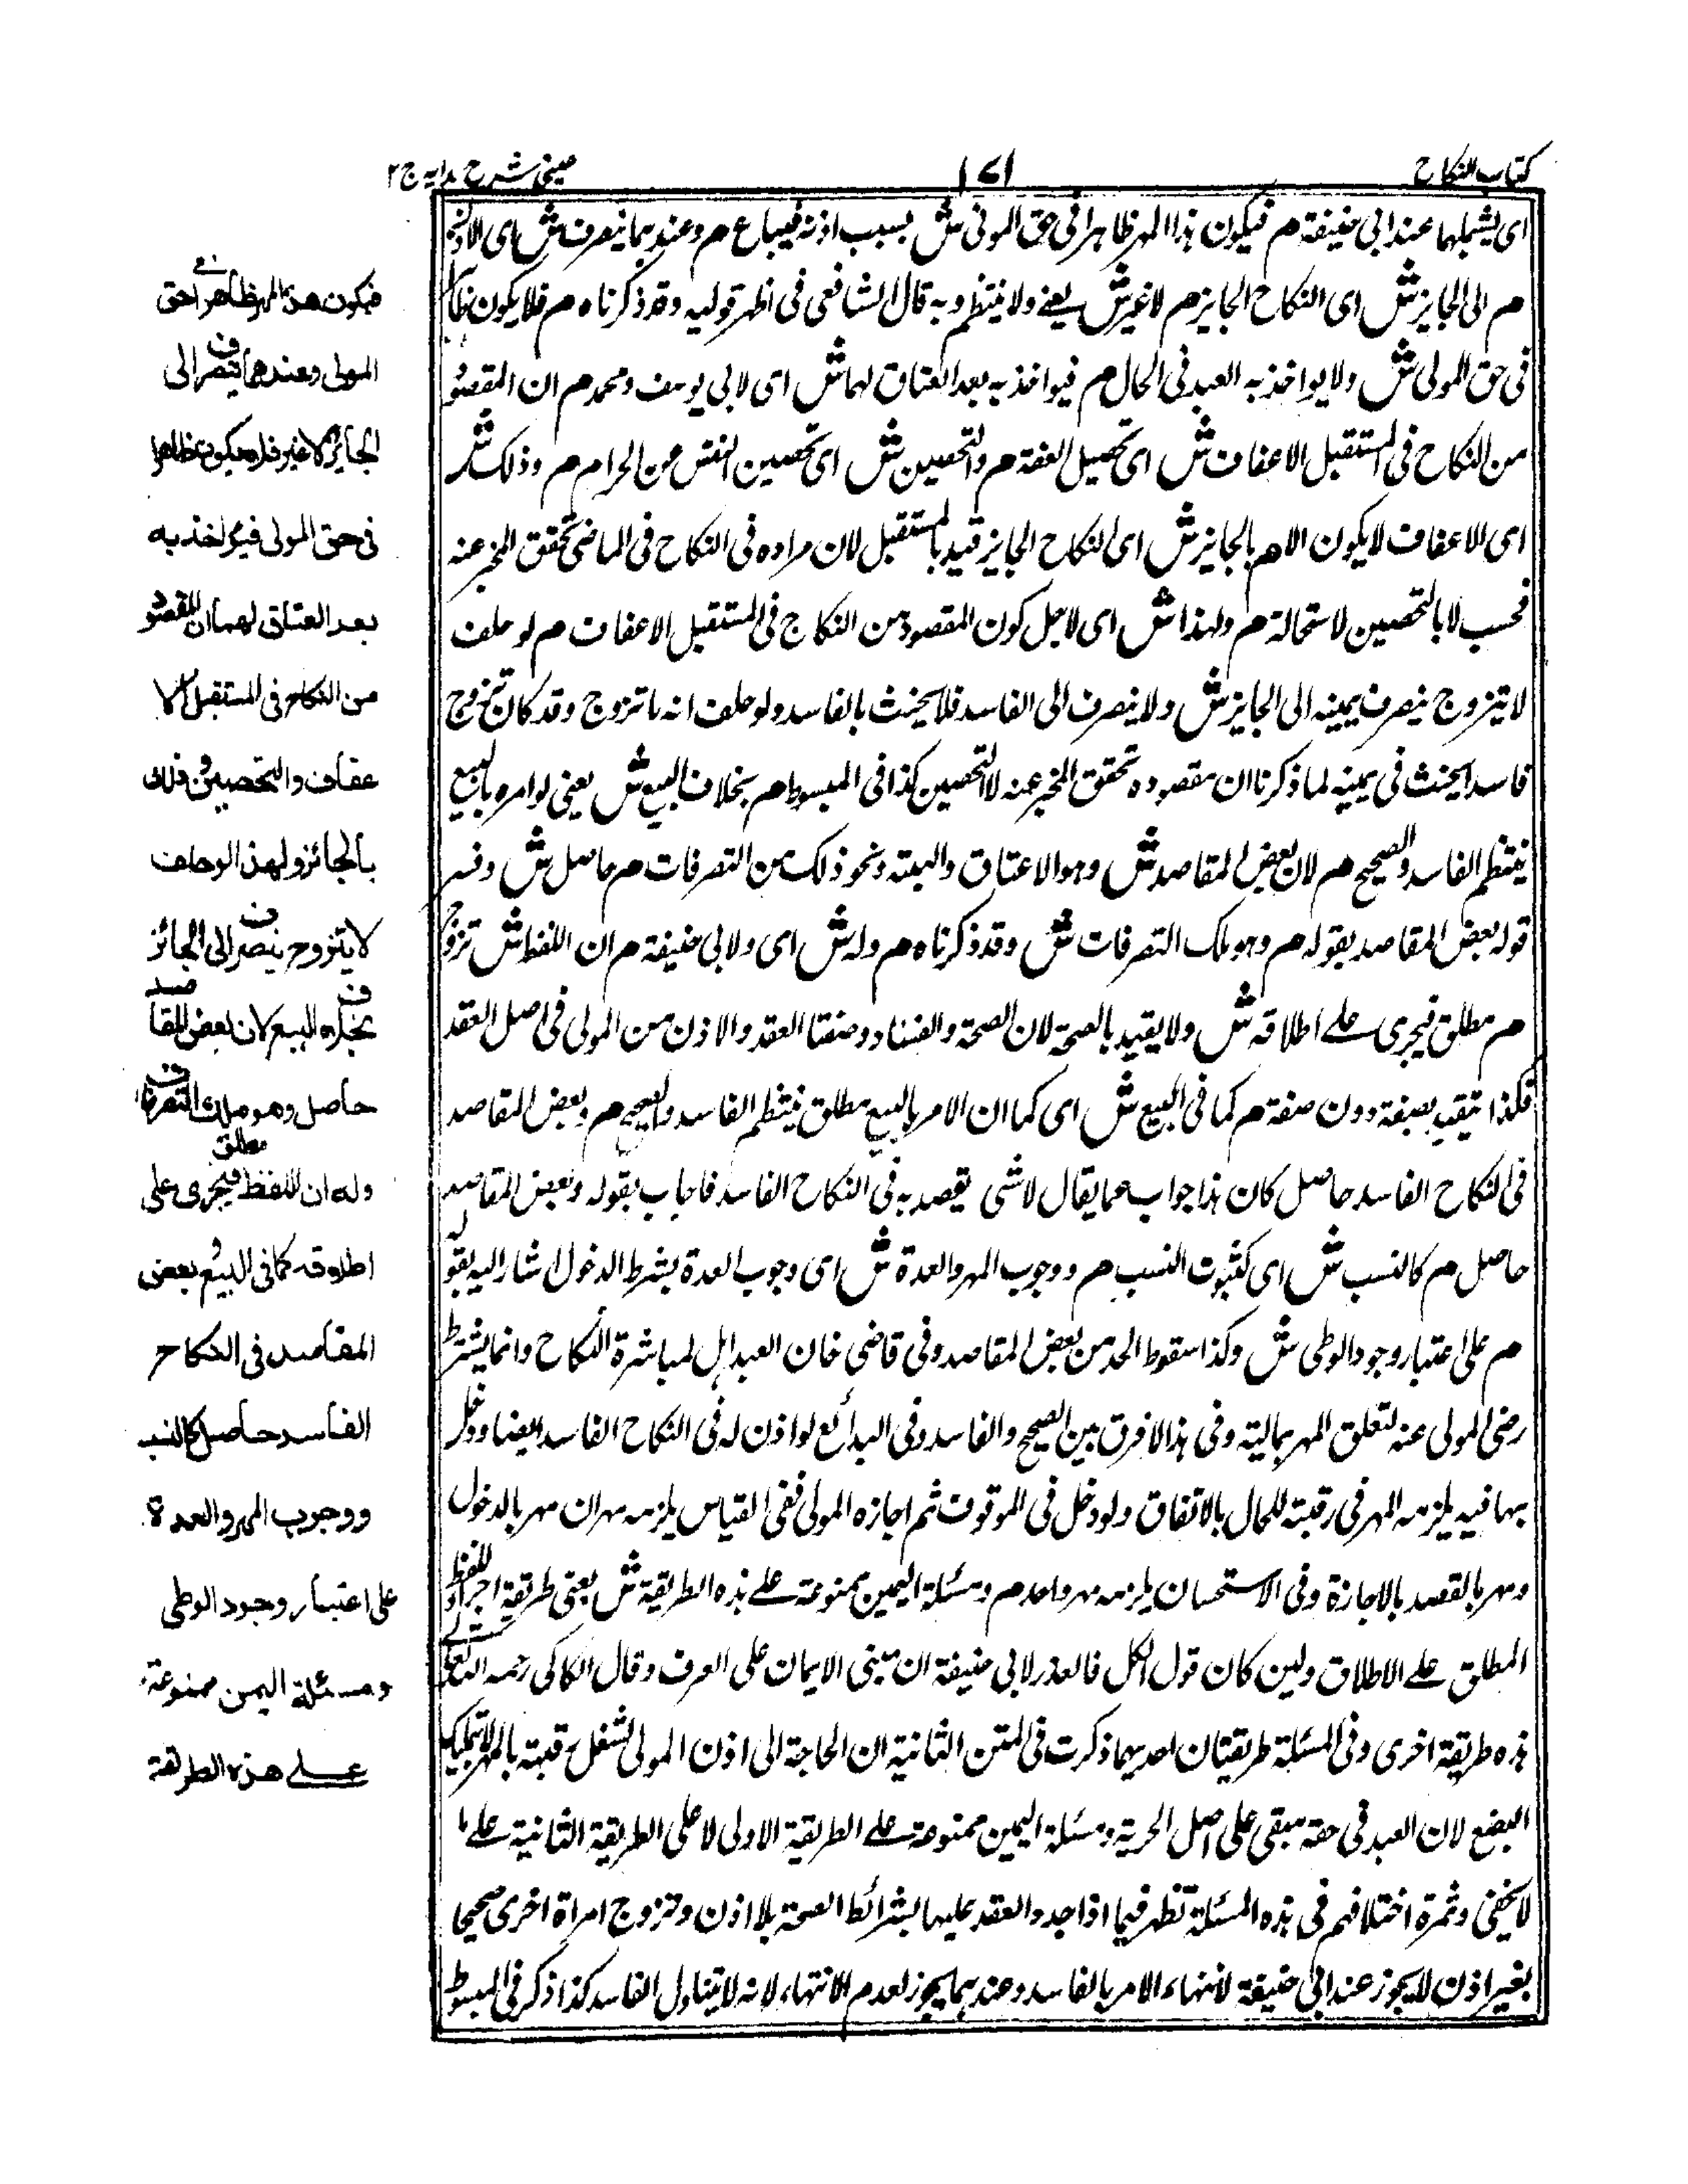 كتاب النكاح
١٧١
عينى شرح هدايه ج ٢
اى يشملهما عند ابى حنيفة م فيكون هذا المهر ظاهرا فى حق المولى ش بسبب اذنه فيباع م وعندهما ينصرف ش اى الاذن
م الى الجايز ش اى النكاح الجايز م لا غير ش يعنى ولا ينتظم وبه قال الشافعى فى اظهر قوليه وقد ذكرناه م فلا يكون ظاهرا
فى حق المولى ش ولا يواخذ به العبد فى الحال م فيواخذ به بعد العتاق لهما ش اى لابى يوسف ومحمد م ان المقصود
من النكاح فى المستقبل الاعفاف ش اى تحصيل العفة م والتحصين ش اى تحصين النفس من الحرام م وذلك ش
اى الاعفاف لا يكون الا م بالجايز ش اى النكاح الجايز قيد بالمستقبل لان مراده فى النكاح فى الماضى تحقق المخبر عنه
فحسب لا بالتحصين لاستحالة م ولهذا ش اى لاجل كون المقصود من النكاح فى المستقبل الاعفاف م لو حلف
لا يتزوج ينصرف يمينه الى الجايز ش ولا ينصرف الى الفاسد فلا يحنث بالفاسد ولو حلف انه ما تزوج وقد كان تزوج
فاسدا يحنث فى يمينه لما ذكرنا ان مقصوده تحقق المخبر عنه لا التحصين كذا فى المبسوط م بخلاف البيع ش يعنى لو امره بالبيع
ينتظم الفاسد والصحيح م لان بعض المقاصد ش وهو الاعتاق والهبة ونحو ذلك من التصرفات م حاصل ش وفسر
قوله بعض المقاصد بقوله م وهو ملك التصرفات ش وقد ذكرناه م وله ش اى ولابى حنيفة م ان اللفظ ش تزوج
م مطلق فيجرى على اطلاقه ش ولا يقيد بالصحة لان الصحة والفساد وصفتا العقد والاذن من المولى فى اصل العقد
فكذا يتقيد بصفة دون صفة م كما فى البيع ش اى كما ان الامر بالبيع مطلق ينتظم الفاسد والصحيح م وبعض المقاصد
فى النكاح الفاسد حاصل كان هذا جواب عما يقال لا شى يقصد به فى النكاح الفاسد فاجاب بقوله وبعض المقاصد
حاصل م كالنسب ش اى كثبوت النسب م ووجوب المهر والعدة ش اى وجوب العدة بشرط الدخول اشار اليه بقوله
م على اعتبار وجود الوطى ش وكذا سقوط الحد من بعض المقاصد وفى قاضى خان العبد اهل لمباشرة النكاح وانما يشترط
رضى المولى عنه لتعلق المهر بماليته وفى هذا لا فرق بين الصحيح والفاسد وفى البدائع لو اذن له فى النكاح الفاسد ايضا ودخل
بها فيه يلزمه المهر فى رقبته للحال بالاتفاق ولو دخل فى الموقوف ثم اجازه المولى ففى القياس يلزمه مهران مهر بالدخول
ومهر بالقصد بالاجازة وفى الاستحسان يلزمه مهر واحد م ومسئلة اليمين ممنوعة على هذه الطريقة ش يعنى طريقة اجراء اللفظ
المطلق على الاطلاق ولين كان قول الكل فالعذر لابى حنيفة ان مبنى الايمان على العرف وقال الكاكى رحمه الله تعالى
هذه طريقة اخرى وفى المسئلة طريقتان احديهما ذكرت فى المتن الثانية ان الحاجة الى اذن المولى لشغل رقبته بالمهر لا تمليك
البضع لان العبد فى حقه مبقى على اصل الحرية ومسئلة اليمين ممنوعة على الطريقة الاولى لا على الطريقة الثانية على ما
لا يخفى وثمرة اختلافهم فى هذه المسئلة تظهر فيما اذا جدد العقد عليها بشرائط الصحة بلا اذن وتزوج امراة اخرى صحيحا
بغير اذن لا يجوز عند ابى حنيفة لانتهاء الامر بالفاسد وعندهما يجوز لعدم الانتهاء لانه لا يتناول الفاسد كذا ذكر فى المبسوط
فيكون هذا المهر ظاهرا فى حق
المولى وعندهما ينصرف الى
الجائز لا غير فلا يكون ظاهرا
فى حق المولى فيؤاخذ به
بعد العتاق لهما ان المقصود
من النكاح فى المستقبل الا
عفاف والتحصين وذلك
بالجائز ولهذا لو حلف
لا يتزوج ينصرف الى الجائز
بخلاف البيع لان بعض المقاصد
حاصل وهو ملك التصرفات
وله ان اللفظ مطلق فيجرى على
اطلاقه كما فى البيع وبعض
المقاصد فى النكاح
الفاسد حاصل كالنسب
ووجوب المهر والعدة
على اعتبار وجود الوطى
ومسئلة اليمين ممنوعة
على هذه الطريقة